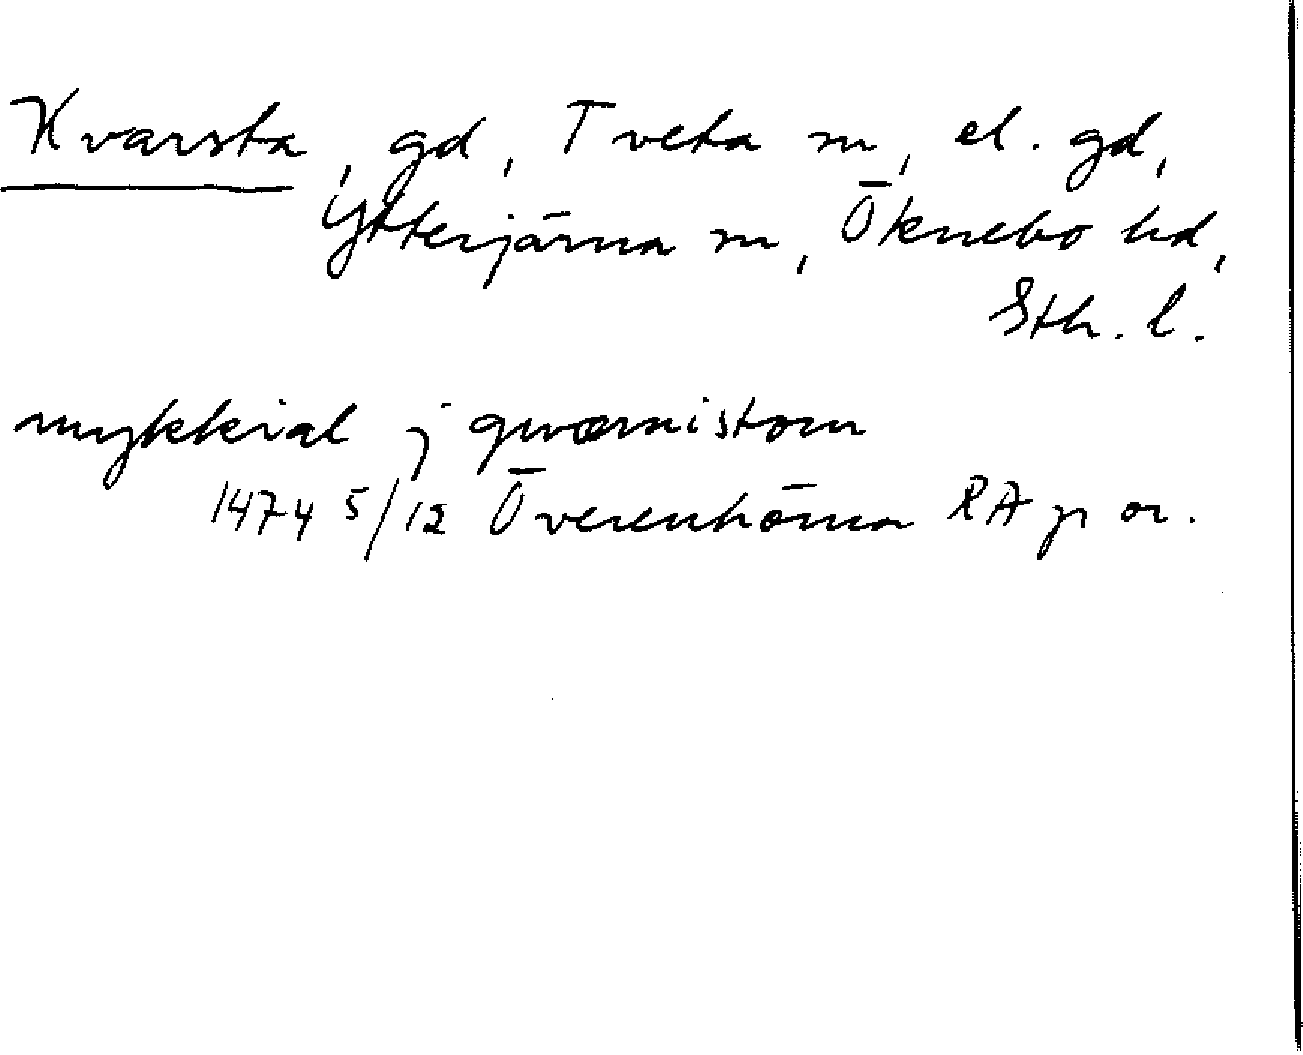 Kvarsta, gd, Tveta sn, el. gd,
Ytterjärna sn, Öknebo hd,
Sth. l.
mykkial j qwærnistom
1474 5/12 Överenhörna RA p or.